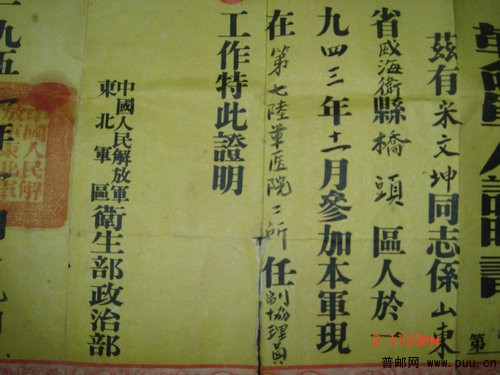 軍人證明書
第
茲有米文坤同志係山東
省威海衛縣橋頭區人於一
九四三年十一月參加本軍現
在第七陸軍医院二所任副協理員
工作特此證明
中國人民解放軍
東北軍區衛生部政治部
一九五一年
中國人民解
放軍東北軍
2 11:23PM
普邮网 www.puu.cn